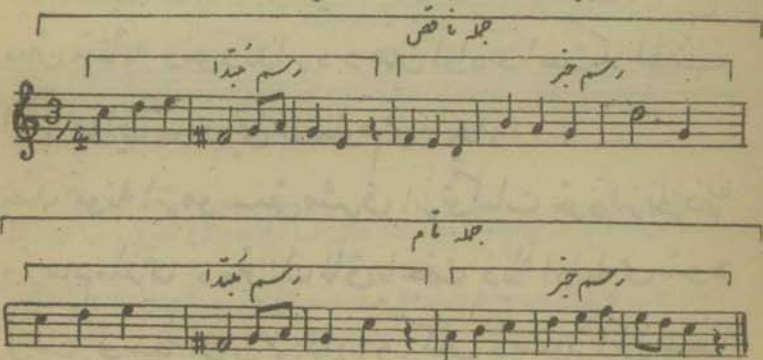 جمله ناقص
رسم مبتدا رسم خبر
3/4
جمله تام
رسم مبتدا رسم خبر